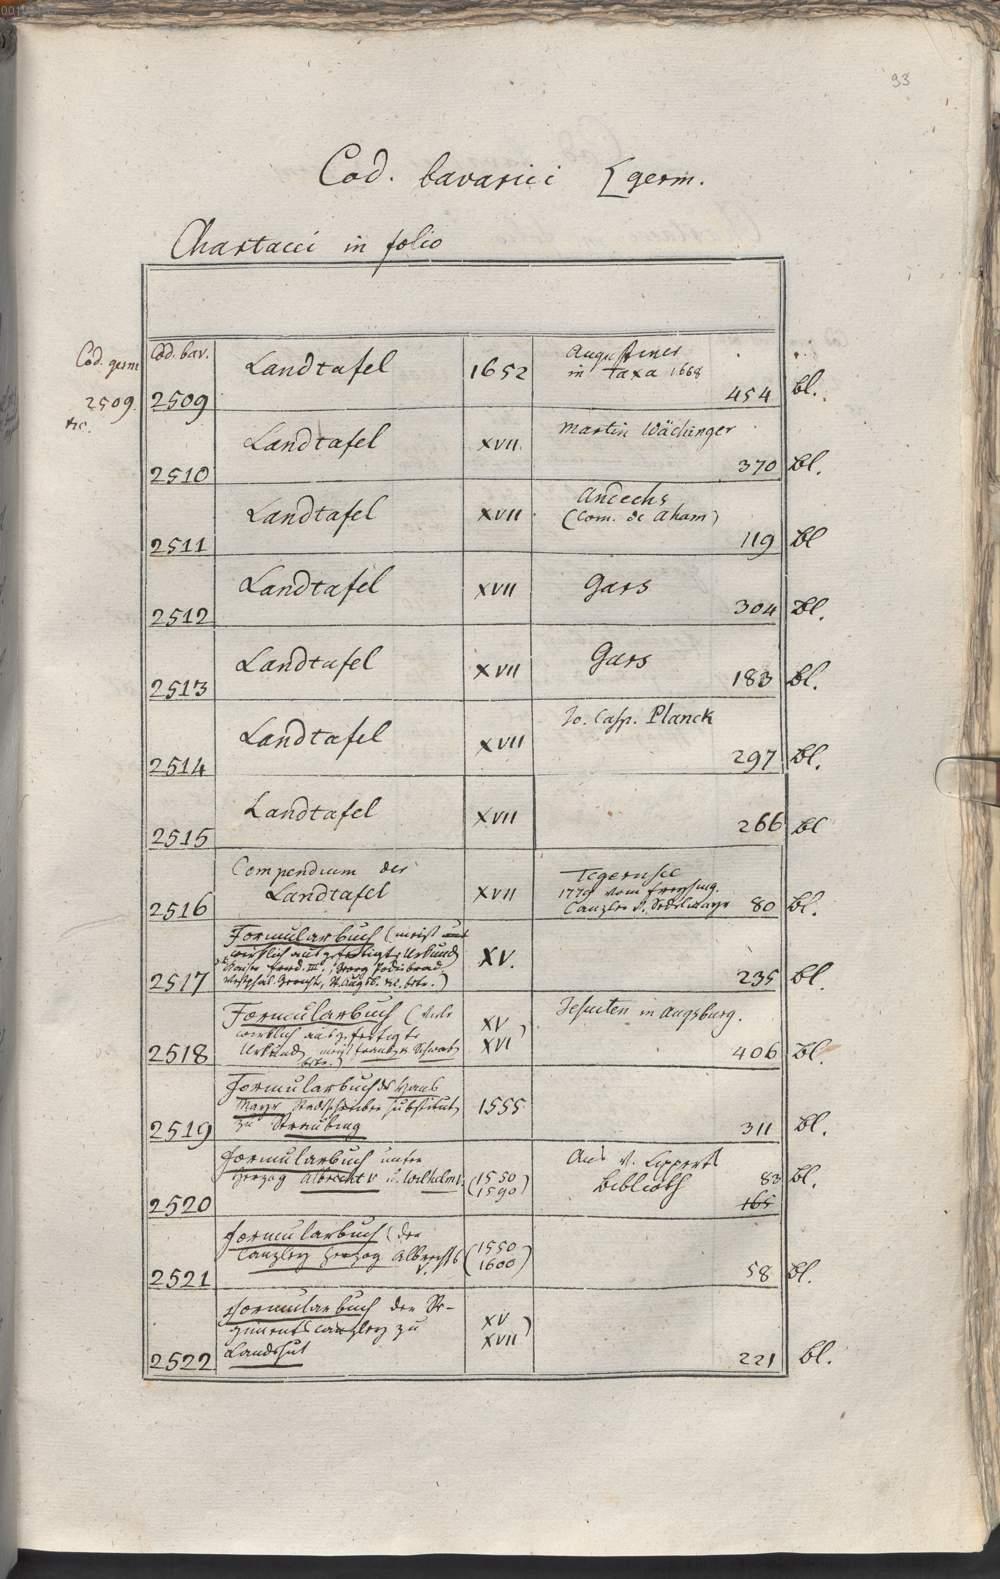 93
Cod. bavarici [germ.
Chartacei in folio
Cod. germ
2509.
Cod. bav.
2509
Landtafel
1652
Augustiner
in Taxa 1668
454 bl.
2510
Landtafel
XVII.
Martin Wächinger
370 bl.
2511
Landtafel
XVII
Andechs
(Com. de Aham)
119 bl
2512
Landtafel
XVII
Gars
304 bl.
2513
Landtafel
XVII
Gars
183 bl.
2514
Landtafel
XVII
Jo. Casp. Planck
297 bl.
2515
Landtafel
XVII
266 bl
2516
Compendium der
Landtafel
XVII
Tegernsee
1779 vom Freysing.
Canzler v. Sedelmayr 80 bl.
2517
Formularbuch (meist
wirklich ausgefertigte Urkund
Kaiser Fried. III, Georg Podiebrad
Westphal. Gericht, St. Augsb. etc. betr.)
XV.
235 bl.
2518
Formularbuch (viele
wirklich ausgefertigte
Urkund meist Frank. Schwab
betr.)
XV
XVI
Jesuiten in Augsburg.
406 bl.
2519
Formularbuch des Hans
Mayr Stadtschreiber Substitut
zu Straubing
1555
311 bl.
2520
Formularbuch unter
Herzog Albrecht V u. Wilhelm V.
(1550
1590)
Aus v. Lipperts
Biblioth
83 bl.
165
2521
Formularbuch (der
Canzley Herzog Albrechts
V.
(1550
1600)
58 bl.
2522
Formularbuch der Re-
gimentscanzley zu
Landshut
XV
XVII)
221 bl.